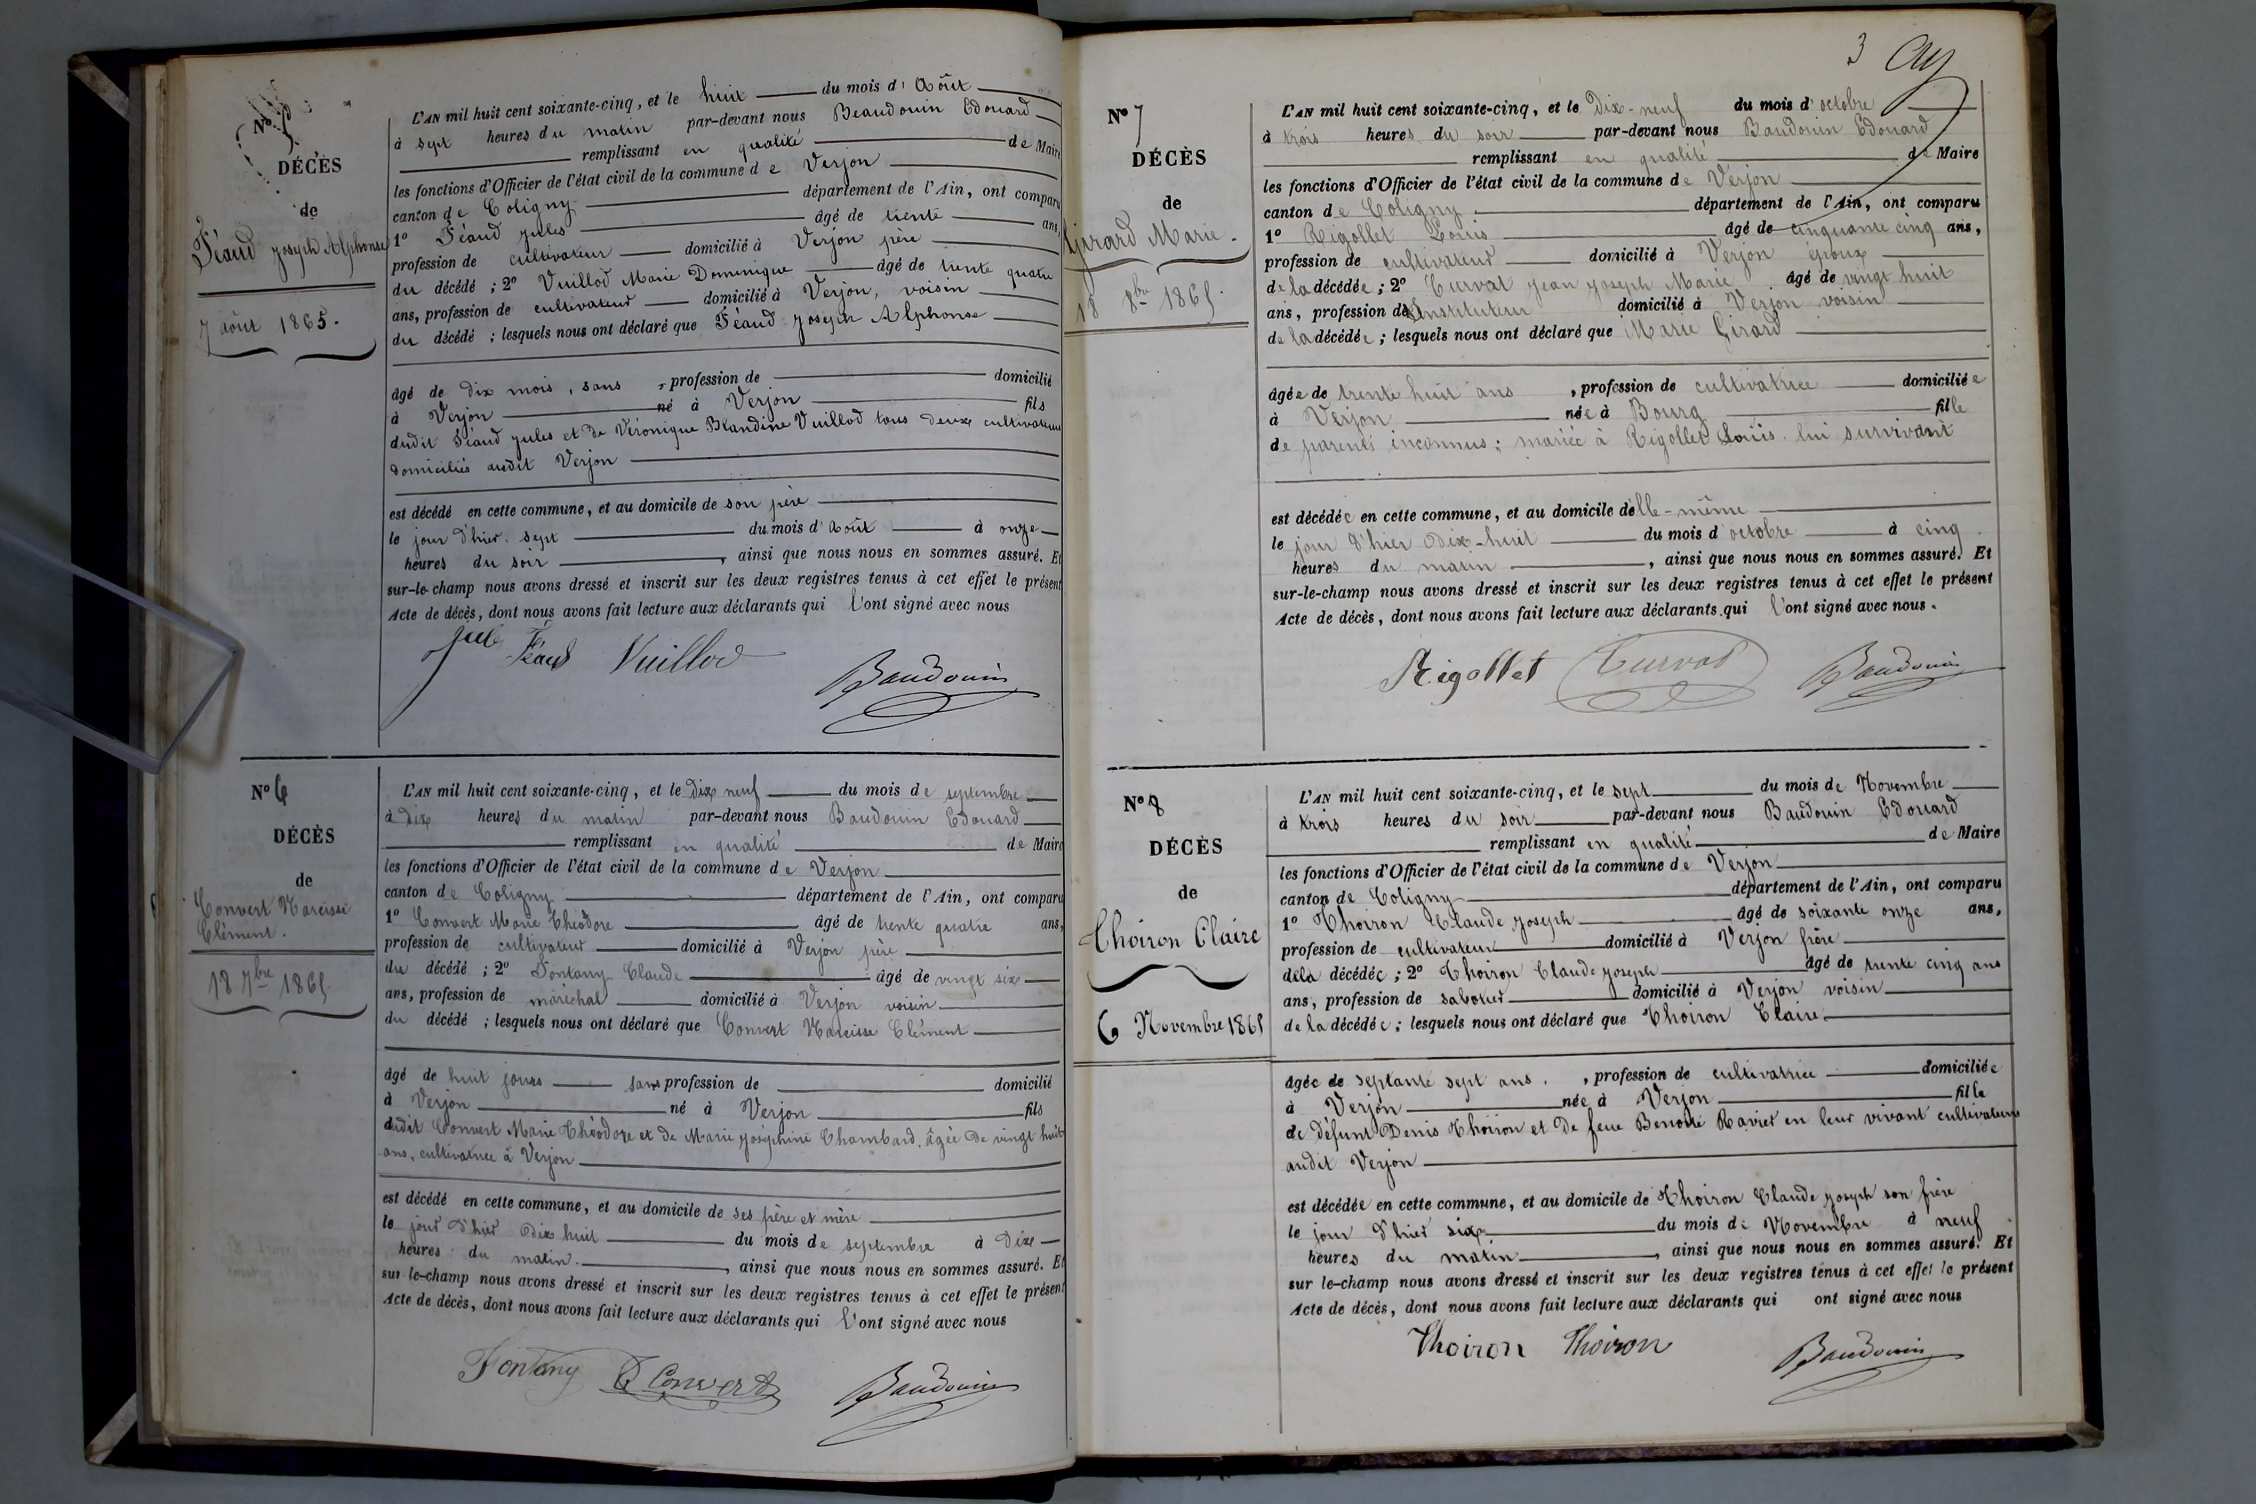 N° 5
DÉCÈS
de
Féaud Joseph Alphonse
7 août 1865.
L'AN mil huit cent soixante-cinq, et le huit du mois d'Août
à sept heures du matin par-devant nous Beaudouin Edouard
remplissant en qualité de Maire
les fonctions d'Officier de l'état civil de la commune de Verjon
canton de Coligny département de l'Ain, ont comparu
1° Féaud Jules âgé de trente ans,
profession de cultivateur domicilié à Verjon père
du décédé ; 2° Vuillod Marie Dominique âgé de trente quatre
ans, profession de cultivateur domicilié à Verjon, voisin
du décédé ; lesquels nous ont déclaré que Féaud Joseph Alphonse
âgé de dix mois, sans profession de domicilié
à Verjon né à Verjon fils
dudit Féaud Jules et de Véronique Blandine Vuillod tous deux cultivateurs
domiciliés audit Verjon
est décédé en cette commune, et au domicile de son père
le jour d'hier sept du mois d'Août à onze
heures du soir, ainsi que nous nous en sommes assuré. Et
sur-le-champ nous avons dressé et inscrit sur les deux registres tenus à cet effet le présent
Acte de décès, dont nous avons fait lecture aux déclarants qui l'ont signé avec nous
Jule Féaud Vuillod Baudouin
N° 6
DÉCÈS
de
Convert Narcisse
Clément.
18 7bre 1865
L'AN mil huit cent soixante-cinq, et le dix neuf du mois de septembre
à dix heures du matin par-devant nous Baudouin Edouard
remplissant en qualité de Maire
les fonctions d'Officier de l'état civil de la commune de Verjon
canton de Coligny département de l'Ain, ont comparu
1° Convert Marie Théodore âgé de trente quatre ans,
profession de cultivateur domicilié à Verjon père
du décédé ; 2° Fontany Claude âgé de vingt six
ans, profession de maréchal domicilié à Verjon voisin
du décédé ; lesquels nous ont déclaré que Convert Narcisse Clément
âgé de huit jours sans profession de domicilié
à Verjon né à Verjon fils
dudit Convert Marie Théodore et de Marie Joséphine Chambard, âgée de vingt huit
ans, cultivatrice à Verjon
est décédé en cette commune, et au domicile de ses père et mère
le jour d'hier dix huit du mois de septembre à dix
heures du matin, ainsi que nous nous en sommes assuré. Et
sur le-champ nous avons dressé et inscrit sur les deux registres tenus à cet effet le présent
Acte de décès, dont nous avons fait lecture aux déclarants qui l'ont signé avec nous
Fontany Convert Baudouin
3
N° 7
DÉCÈS
de
Girard Marie.
18 8bre 1865.
L'AN mil huit cent soixante-cinq, et le Dix-neuf du mois d'octobre
à trois heures du soir par-devant nous Baudouin Edouard
remplissant en qualité de Maire
les fonctions d'Officier de l'état civil de la commune de Verjon
canton de Coligny département de l'Ain, ont comparu
1° Rigollet Louis âgé de cinquante cinq ans,
profession de cultivateur domicilié à Verjon époux
de la décédée ; 2° Curvat Jean Joseph Marie âgé de vingt huit
ans, profession d'Instituteur domicilié à Verjon voisin
de la décédée ; lesquels nous ont déclaré que Marie Girard
âgée de trente huit ans, profession de cultivatrice domiciliée
à Verjon née à Bourg fille
de parents inconnus ; mariée à Rigollet Louis lui survivant
est décédée en cette commune, et au domicile d'elle-même
le jour d'hier dix-huit du mois d'octobre à cinq
heures du matin, ainsi que nous nous en sommes assuré. Et
sur-le-champ nous avons dressé et inscrit sur les deux registres tenus à cet effet le présent
Acte de décès, dont nous avons fait lecture aux déclarants qui l'ont signé avec nous.
Rigollet Curvat Baudouin
N° 8
DÉCÈS
de
Thoiron Claire
6 Novembre 1865
L'AN mil huit cent soixante-cinq, et le sept du mois de Novembre
à trois heures du soir par-devant nous Baudouin Edouard
remplissant en qualité de Maire
les fonctions d'Officier de l'état civil de la commune de Verjon
canton de Coligny département de l'Ain, ont comparu
1° Thoiron Claude Joseph âgé de soixante onze ans,
profession de cultivateur domicilié à Verjon frère
de la décédée ; 2° Thoiron Claude Joseph âgé de trente cinq ans
ans, profession de sabotier domicilié à Verjon voisin
de la décédée ; lesquels nous ont déclaré que Thoiron Claire
âgée de septante sept ans, profession de cultivatrice domiciliée
à Verjon née à Verjon fille
de défunt Denis Thoiron et de feue Benoite Ravier en leur vivant cultivateurs
audit Verjon
est décédée en cette commune, et au domicile de Thoiron Claude Joseph son frère
le jour d'hier six du mois de Novembre à neuf
heures du matin, ainsi que nous nous en sommes assuré. Et
sur le-champ nous avons dressé et inscrit sur les deux registres tenus à cet effet le présent
Acte de décès, dont nous avons fait lecture aux déclarants qui ont signé avec nous
Thoiron Thoiron Baudouin